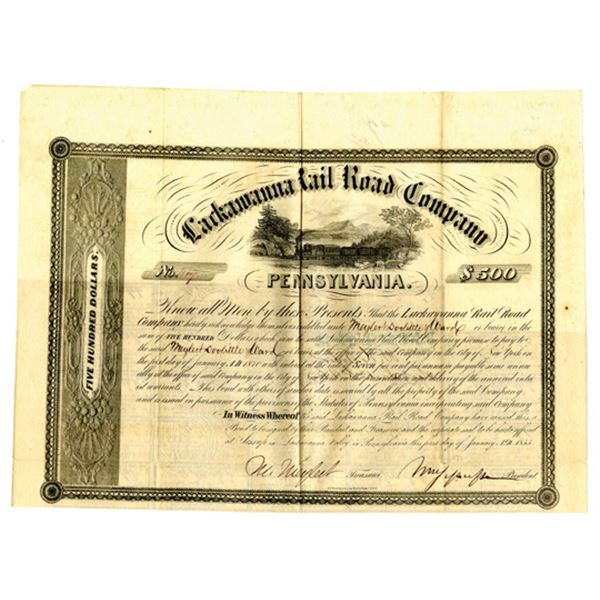 Lackawanna Rail Road Company
No.
PENNSYLVANIA.
$500
FIVE HUNDRED DOLLARS.
Know all Men by these Presents, That the Lackawanna Rail Road
Company hereby acknowledge themselves indebted unto Meylert Doolittle & Ward or bearer in the
sum of FIVE HUNDRED Dollars which sum the said Lackawanna Rail Road Company promise to pay to
the said Meylert Doolittle & Ward or bearer at the office of the said Company in the City of New York on
the first day of January A.D. with interest at the rate of Seven per cent per annum payable
at the office of said Company in the City of New York on the and delivery of the annexed interest
warrants. This bond with others of similar date is issued by all the property of the said Company
and issued in pursuance of the provisions of the Statutes of Pennsylvania said Company
In Witness Whereof the said Lackawanna Rail Road Company have caused this
Bond to be signed by their President and Treasurer and the corporate seal to be hereto affixed
at in Pennsylvania the first day of January A.D. 1855
M. Meylert Treasurer
President